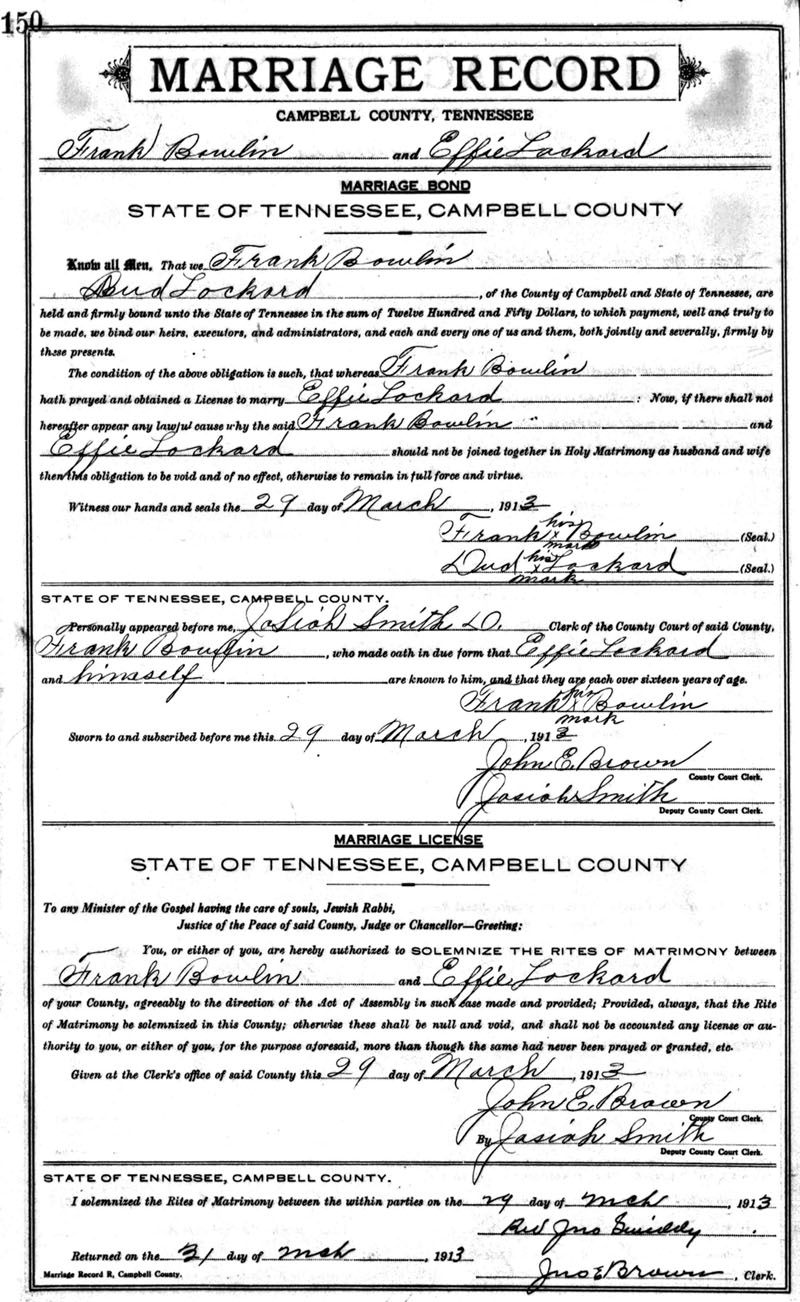 150
MARRIAGE RECORD
CAMPBELL COUNTY, TENNESSEE
Frank Bowlin and Effie Lockard
MARRIAGE BOND
STATE OF TENNESSEE, CAMPBELL COUNTY
Know all Men, That we Frank Bowlin
Dud Lockard, of the County of Campbell and State of Tennessee, are
held and firmly bound unto the State of Tennessee in the sum of Twelve Hundred and Fifty Dollars, to which payment, well and truly to
be made, we bind our heirs, executors, and administrators, and each and every one of us and them, both jointly and severally, firmly by
these presents.
The condition of the above obligation is such, that whereas Frank Bowlin
hath prayed and obtained a License to marry Effie Lockard : Now, if there shall not
hereafter appear any lawful cause why the said Frank Bowlin and
Effie Lockard should not be joined together in Holy Matrimony as husband and wife
then this obligation to be void and of no effect, otherwise to remain in full force and virtue.
Witness our hands and seals the 29 day of March, 1913
Frank his x mark Bowlin (Seal.)
Dud his x mark Lockard (Seal.)
STATE OF TENNESSEE, CAMPBELL COUNTY.
Personally appeared before me, Josiah Smith D. Clerk of the County Court of said County,
Frank Bowlin, who made oath in due form that Effie Lockard
and himself are known to him, and that they are each over sixteen years of age.
Frank his x mark Bowlin
Sworn to and subscribed before me this 29 day of March, 1913
John E. Brown
County Court Clerk.
Josiah Smith
Deputy County Court Clerk.
MARRIAGE LICENSE
STATE OF TENNESSEE, CAMPBELL COUNTY
To any Minister of the Gospel having the care of souls, Jewish Rabbi,
Justice of the Peace of said County, Judge or Chancellor—Greeting:
You, or either of you, are hereby authorized to SOLEMNIZE THE RITES OF MATRIMONY between
Frank Bowlin and Effie Lockard
of your County, agreeably to the direction of the Act of Assembly in such case made and provided; Provided, always, that the Rite
of Matrimony be solemnized in this County; otherwise these shall be null and void, and shall not be accounted any license or au-
thority to you, or either of you, for the purpose aforesaid, more than though the same had never been prayed or granted, etc.
Given at the Clerk's office of said County this 29 day of March, 1913
John E. Brown
County Court Clerk.
By Josiah Smith
Deputy County Court Clerk.
STATE OF TENNESSEE, CAMPBELL COUNTY.
I solemnized the Rites of Matrimony between the within parties on the 29 day of Mch, 1913
Rev Jno
Returned on the 31 day of Mch, 1913
Jno E Brown, Clerk.
Marriage Record R, Campbell County.